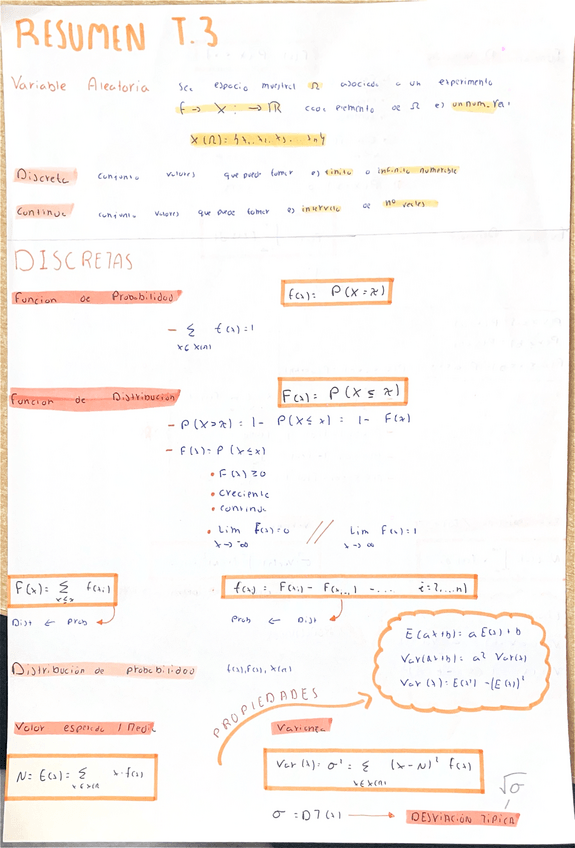 RESUMEN T.3
Variable Aleatoria Sea espacio muestral Ω asociado a un experimento
f → X : → ℝ cada elemento de Ω es un num. real
X(Ω) = {x₁, x₂, x₃, ... xₙ}
Discreta conjunto valores que puede tomar es finito o infinito numerable
Continua conjunto valores que puede tomar es intervalo de nº reales
DISCRETAS
Función de Probabilidad f(x) = P(X = x)
– Σ f(x) = 1
x ∈ X(Ω)
Función de Distribución F(x) = P(X ≤ x)
– P(X > x) = 1 - P(X ≤ x) = 1 - F(x)
– F(x) = P(X ≤ x)
• F(x) ≥ 0
• creciente
• continua
• Lim F(x) = 0 // Lim F(x) = 1
x → -∞ x → ∞
F(x) = Σ f(xᵢ) f(xᵢ) = F(xᵢ) - F(xᵢ₋₁) - ... i = 2, ... n
Dist ← Prob Prob ← Dist
E(ax+b) = a E(x) + b
Var(ax+b) = a² Var(x)
Var(x) = E(x²) - (E(x))²
Distribución de probabilidad f(x), F(x), X(Ω)
PROPIEDADES
Valor esperado / Media Varianza
N = E(x) = Σ x · f(x) Var(x) = σ² = Σ (x - N)² f(x)
x ∈ X(Ω) x ∈ X(Ω)
√σ
σ = DT(x) → DESVIACIÓN TÍPICA